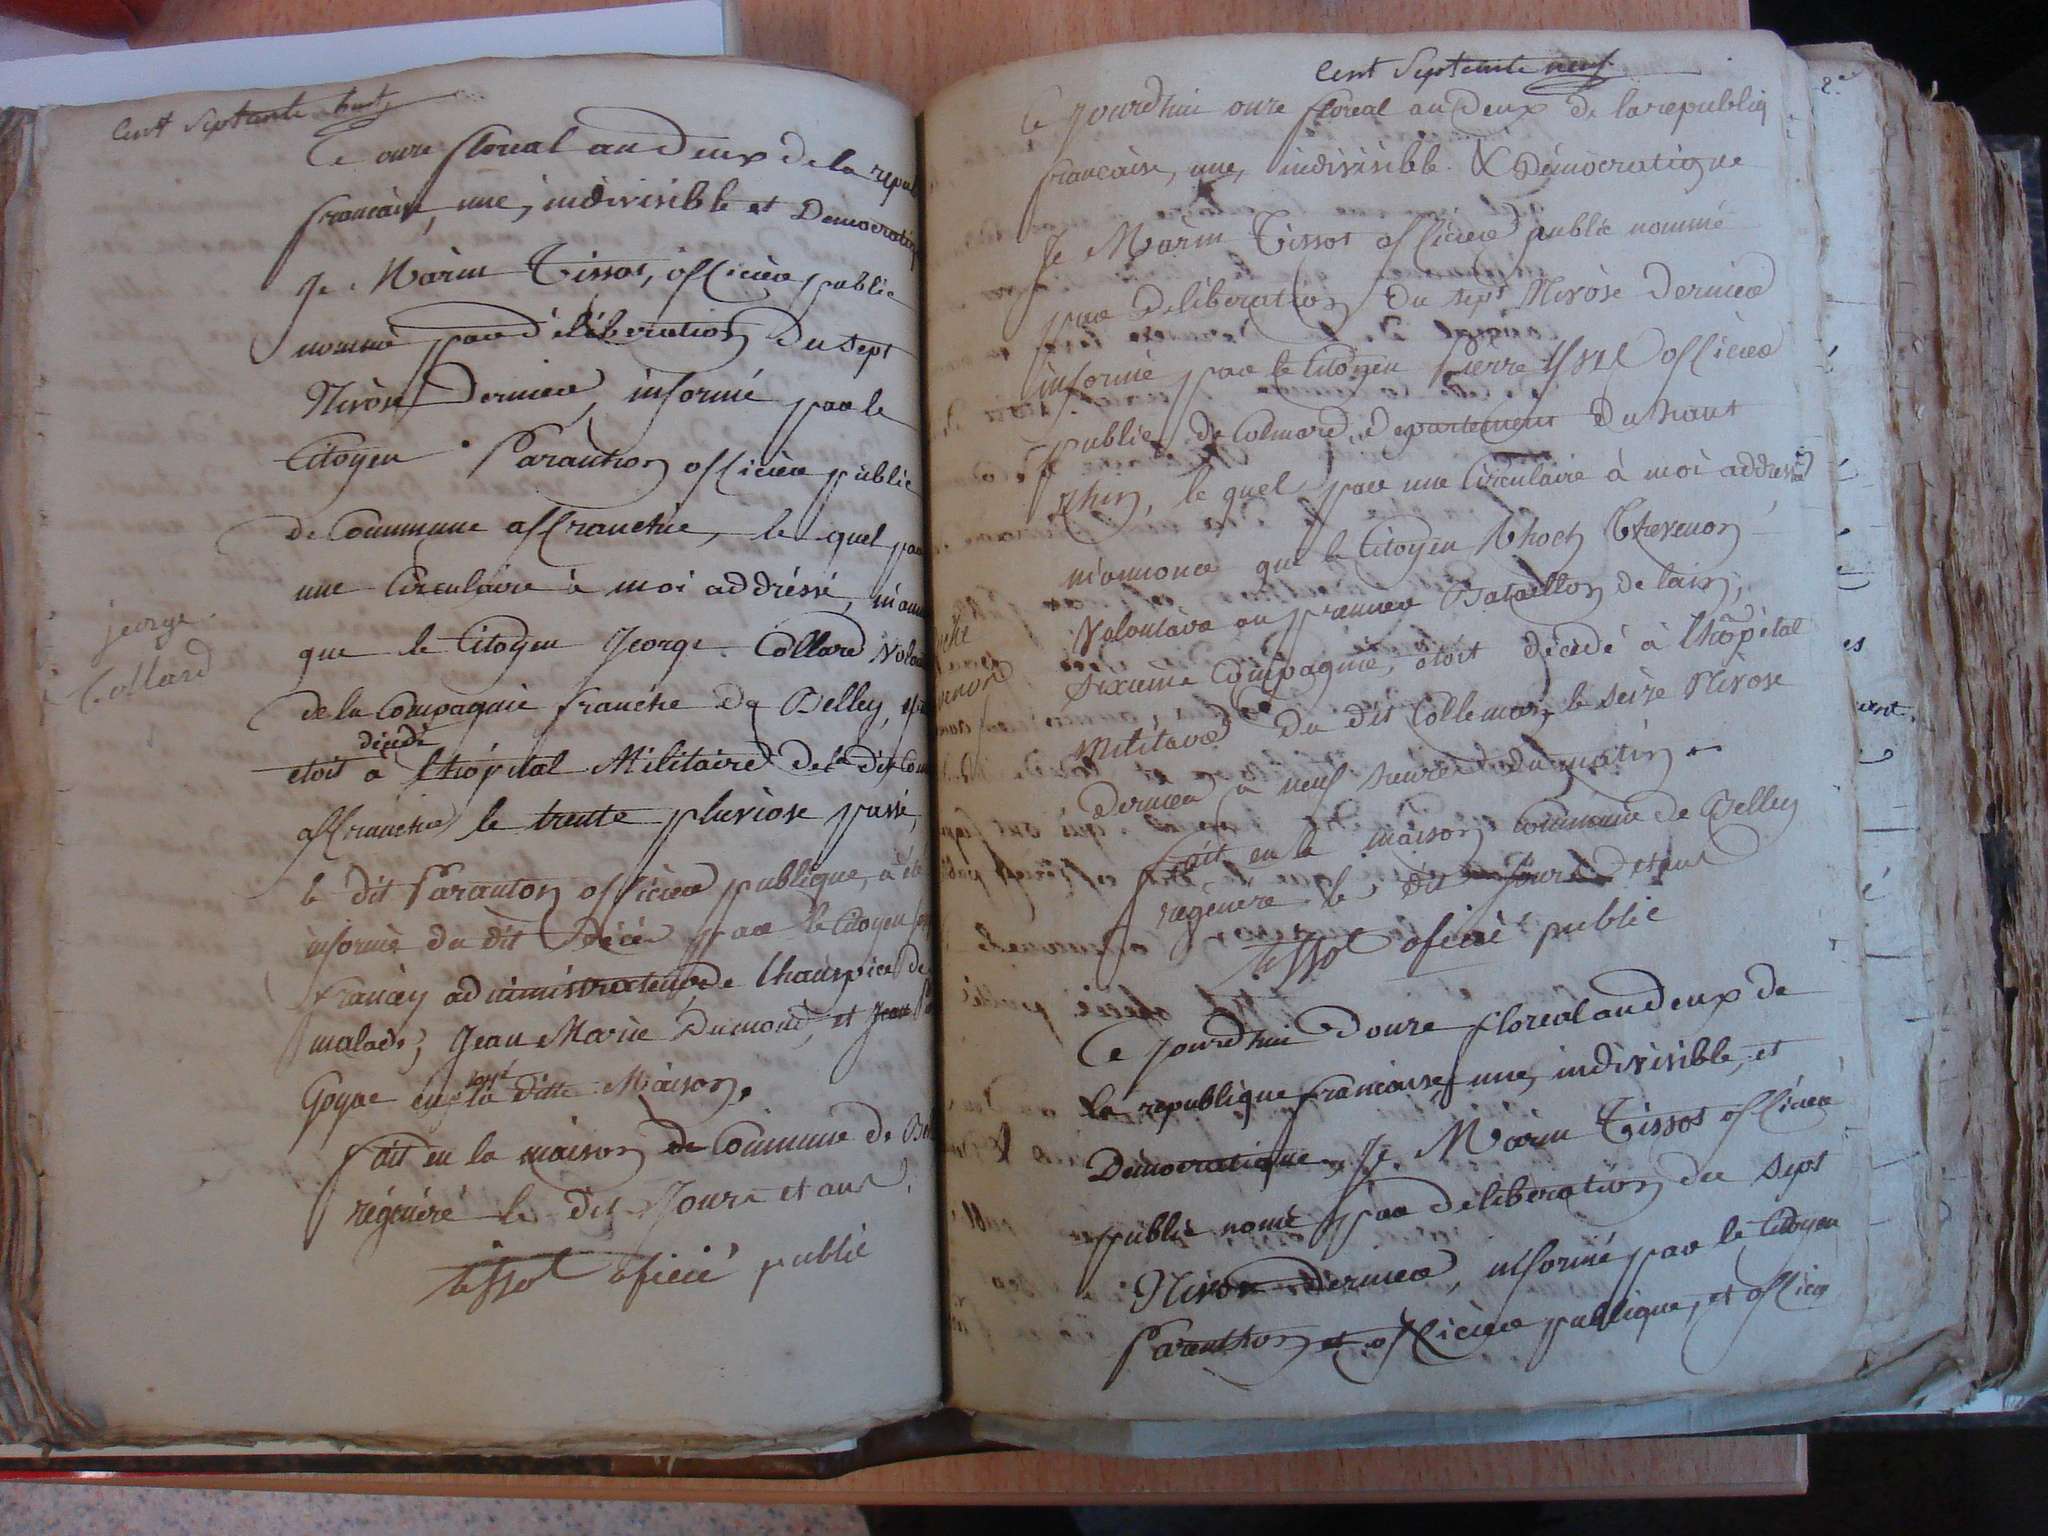 Cent Septante huit
Ce onze floreal an Deux de la repu
francaise, une, indivisible et Democratiq
Je Marin Tissot, officier public
nommé par déliberation du sept
Nivôse Dernier, informé par le
Citoyen Paranthon officier public
de Commune affranchie, le quel par
une Circulaire à moi addréssé, m'ann
george
Collard
que le Citoyen George Collard Volon
de la Compagnie franche de Belley,
décédé
etoit à l'hôpital Militaire de la dit Com
affranchie le trente pluviose passé,
le dit Paranton officier publique, à été
informé du dit Décès par le Citoyen
francey administrateur de l'hauspice de
malade, Jean Marie Dumond, et Jean
Goyne en la ditte Maison.
fait en la maison de Commune de Bel
régénéré le dit Jours et ans.
tissot oficié public
Cent Septente neuf
Ce jourdhui onze floreal an Deux de la republiq
francaise, une, indivisible & Démocratique
Je Marin Tissot officier public nommé
par Deliberation du sept Nivôse Dernier
informé par le Citoyen Pierre officier
public de Colmard, département du haut
rhin, le quel par une Circulaire à moi addressé
m'annonce que le Citoyen Rhoch Thevenon
Volontaire au premier Bataillon de lain,
sixieme Compagnie, étoit décédé à lhôpital
Militaire du dit Collemar, le seize Nivose
dernier à neuf heures du matin.
fait en la maison Commune de Belley
régénéré le dit Jours et ans
tissot oficié public
Ce jourdhui Douze floreal an deux de
la republique francaise, une, indivisible, et
Démocratique, Je Marin Tissot officier
public nomé par déliberation du sept
Nivose dernier, informé par le Citoyen
Paranthon et officier publique, et officier